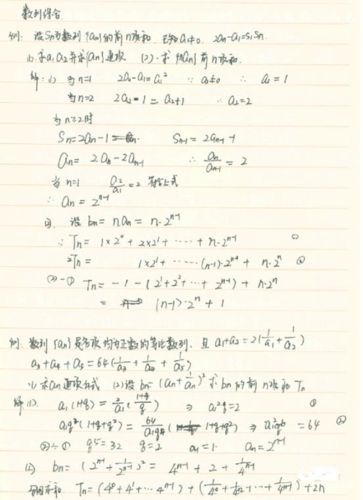 数列综合
例: 设Sn为数列{an}的前n项和 已知a₁≠0, 2an-a₁=S₁Sn
(1) 求a₁ a₂ 并求{an}通项 (2). 求{nan}前n项和.
解: (1) 当n=1 2a₁-a₁=a₁² ∵ a₁≠0 ∴ a₁=1
当n=2 2a₂-1=a₂+1 ∴a₂=2
当n≥2时
Sn=2an-1 Sn-1=2an-1-1
an=2an-2an-1 ∴ an/an-1=2
当n=1 a₂/a₁=2 符合上式
∴ an=2ⁿ⁻¹
(2). 设 bn=nan=n·2ⁿ⁻¹
∴ Tn=1×2⁰+2×2¹+……+n·2ⁿ⁻¹ ①
2Tn= 1×2¹+……(n-1)·2ⁿ⁻¹+n·2ⁿ ②
②-① Tn=-1-(2¹+2²+…+2ⁿ⁻¹)+n·2ⁿ
= (n-1)·2ⁿ+1
例. 数列{an}是各项均为正数的等比数列. 且a₁+a₂=2(1/a₁+1/a₂)
a₃+a₄+a₅=64(1/a₃+1/a₄+1/a₅)
(1) 求an通项公式 (2)设bn=(an+1/an)² 求bn的前n项和Tn
解(1). a₁(1+q)=2/a₁(1+q/q) ⇒ a₁²q=2 ①
a₁q²(1+q+q²)=64/a₁q⁴(1+q+q²) ⇒ a₁²q⁶=64 ②
②÷① q⁵=32 q=2 a₁=1 an=2ⁿ⁻¹
(2) bn=(2ⁿ⁻¹+1/2ⁿ⁻¹)²=4ⁿ⁻¹+2+1/4ⁿ⁻¹
Tn=(4⁰+4¹+…4ⁿ⁻¹)+(1/4⁰+1/4¹+…+1/4ⁿ⁻¹)+2n